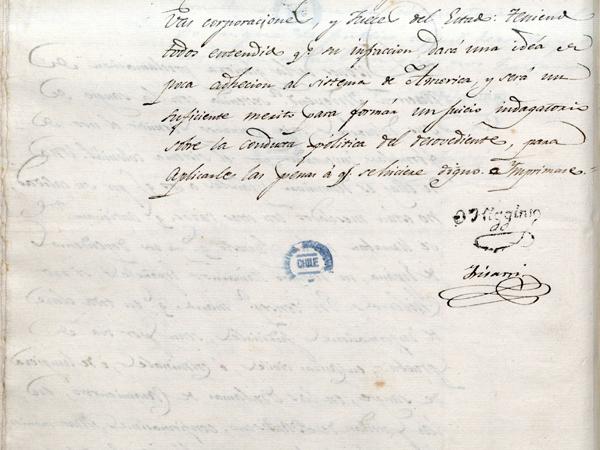 vas corporaciones, y Jueces del Estado: teniendo
todos entendido qe su infraccion dará una idea de
poca adhecion al sistema de America, y será un
suficiente merito para formár un juicio indagatorio
sobre la conducta politica del desovediente, para
aplicarle las penas á qe se hiciere digno. Imprimase.
O'Higgins
Irisarri
CHILE